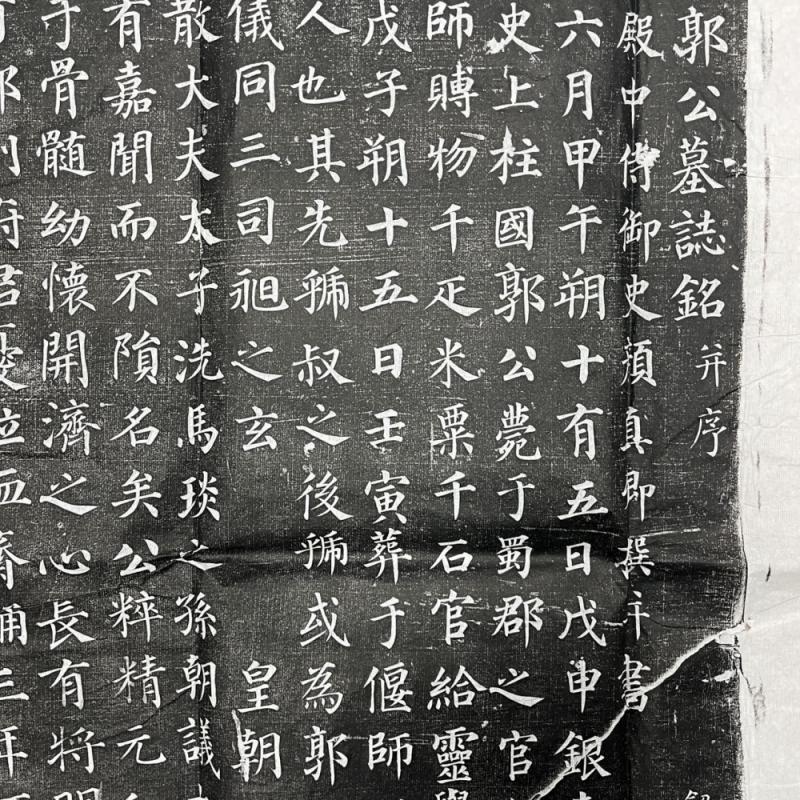 郭公墓誌銘 并序
殿中侍御史顏真卿撰并書
六月甲午朔十有五日戊申銀
史上柱國郭公薨于蜀郡之官
師賻物千疋米粟千石官給靈
戊子朔十五日壬寅葬于偃師
人也其先虢叔之後虢或為郭
儀同三司昶之玄 皇朝
散大夫太子洗馬琰之孫朝議
有嘉聞而不隕名矣公粹精元
于骨髓幼懷開濟之心長有將